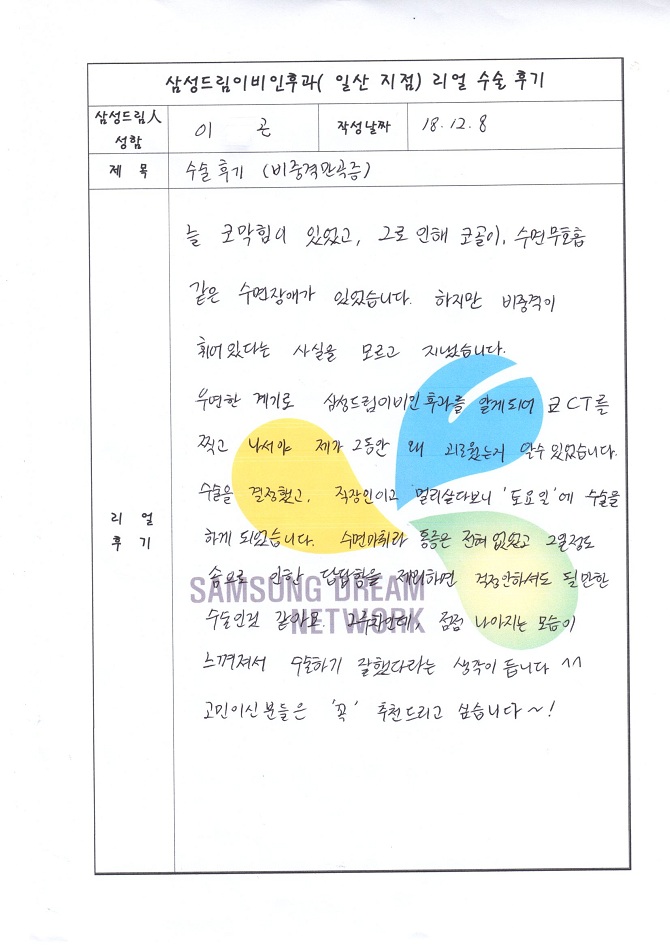 삼성드림이비인후과( 일산 지점) 리얼 수술 후기
삼성드림人
성함
이 곤
작성날짜
18.12.8
제 목
수술 후기 (비중격만곡증)
리 얼
후 기
늘 코막힘이 있었고, 그로 인해 코골이, 수면무호흡
같은 수면장애가 있었습니다. 하지만 비중격이
휘어있다는 사실을 모르고 지냈습니다.
우연한 계기로 삼성드림이비인후과를 알게되어 코CT를
찍고 나서야 제가 그동안 왜 괴로웠는지 알수 있었습니다.
수술을 결정했고, 직장인이고 멀리살다보니 '토요일'에 수술을
하게 되었습니다. 수면마취라 통증은 전혀 없었고 2일정도
솜으로 인한 답답함을 제외하면 걱정안하셔도 될만한
SAMSUNG DREAM
NETWORK
수술인것 같아요. 2주차인데, 점점 나아지는 모습이
느껴져서 수술하기 잘했다라는 생각이 듭니다 ^^
고민이신분들은 '꼭' 추천드리고 싶습니다~!